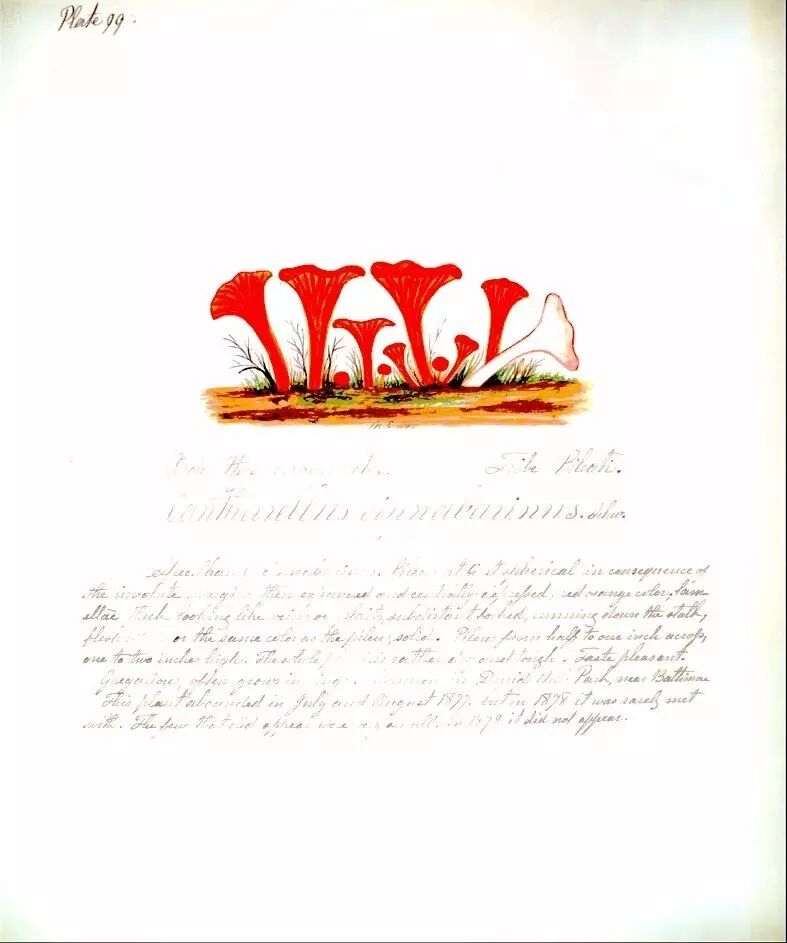 Plate 99.
Tribe Pileati.
Cantharellus cinnabarinus. Schw.
spherical in consequence of
the involute margin, then expanded and centrally depressed, red orange color, Lam
ellae thick looking like veins or folds, subdistant forked, running down the stalk,
flesh or the same color as the pileus, solid. Pileus from half to one inch across,
one to two inches high. The whole rather dry and tough. Taste pleasant.
Gregarious, often grows in Common in Druid Hill Park, near Baltimore
This plant abounded in July and August 1877. but in 1878 it was rarely met
with. The few that did appear were very small. in 1879 it did not appear.